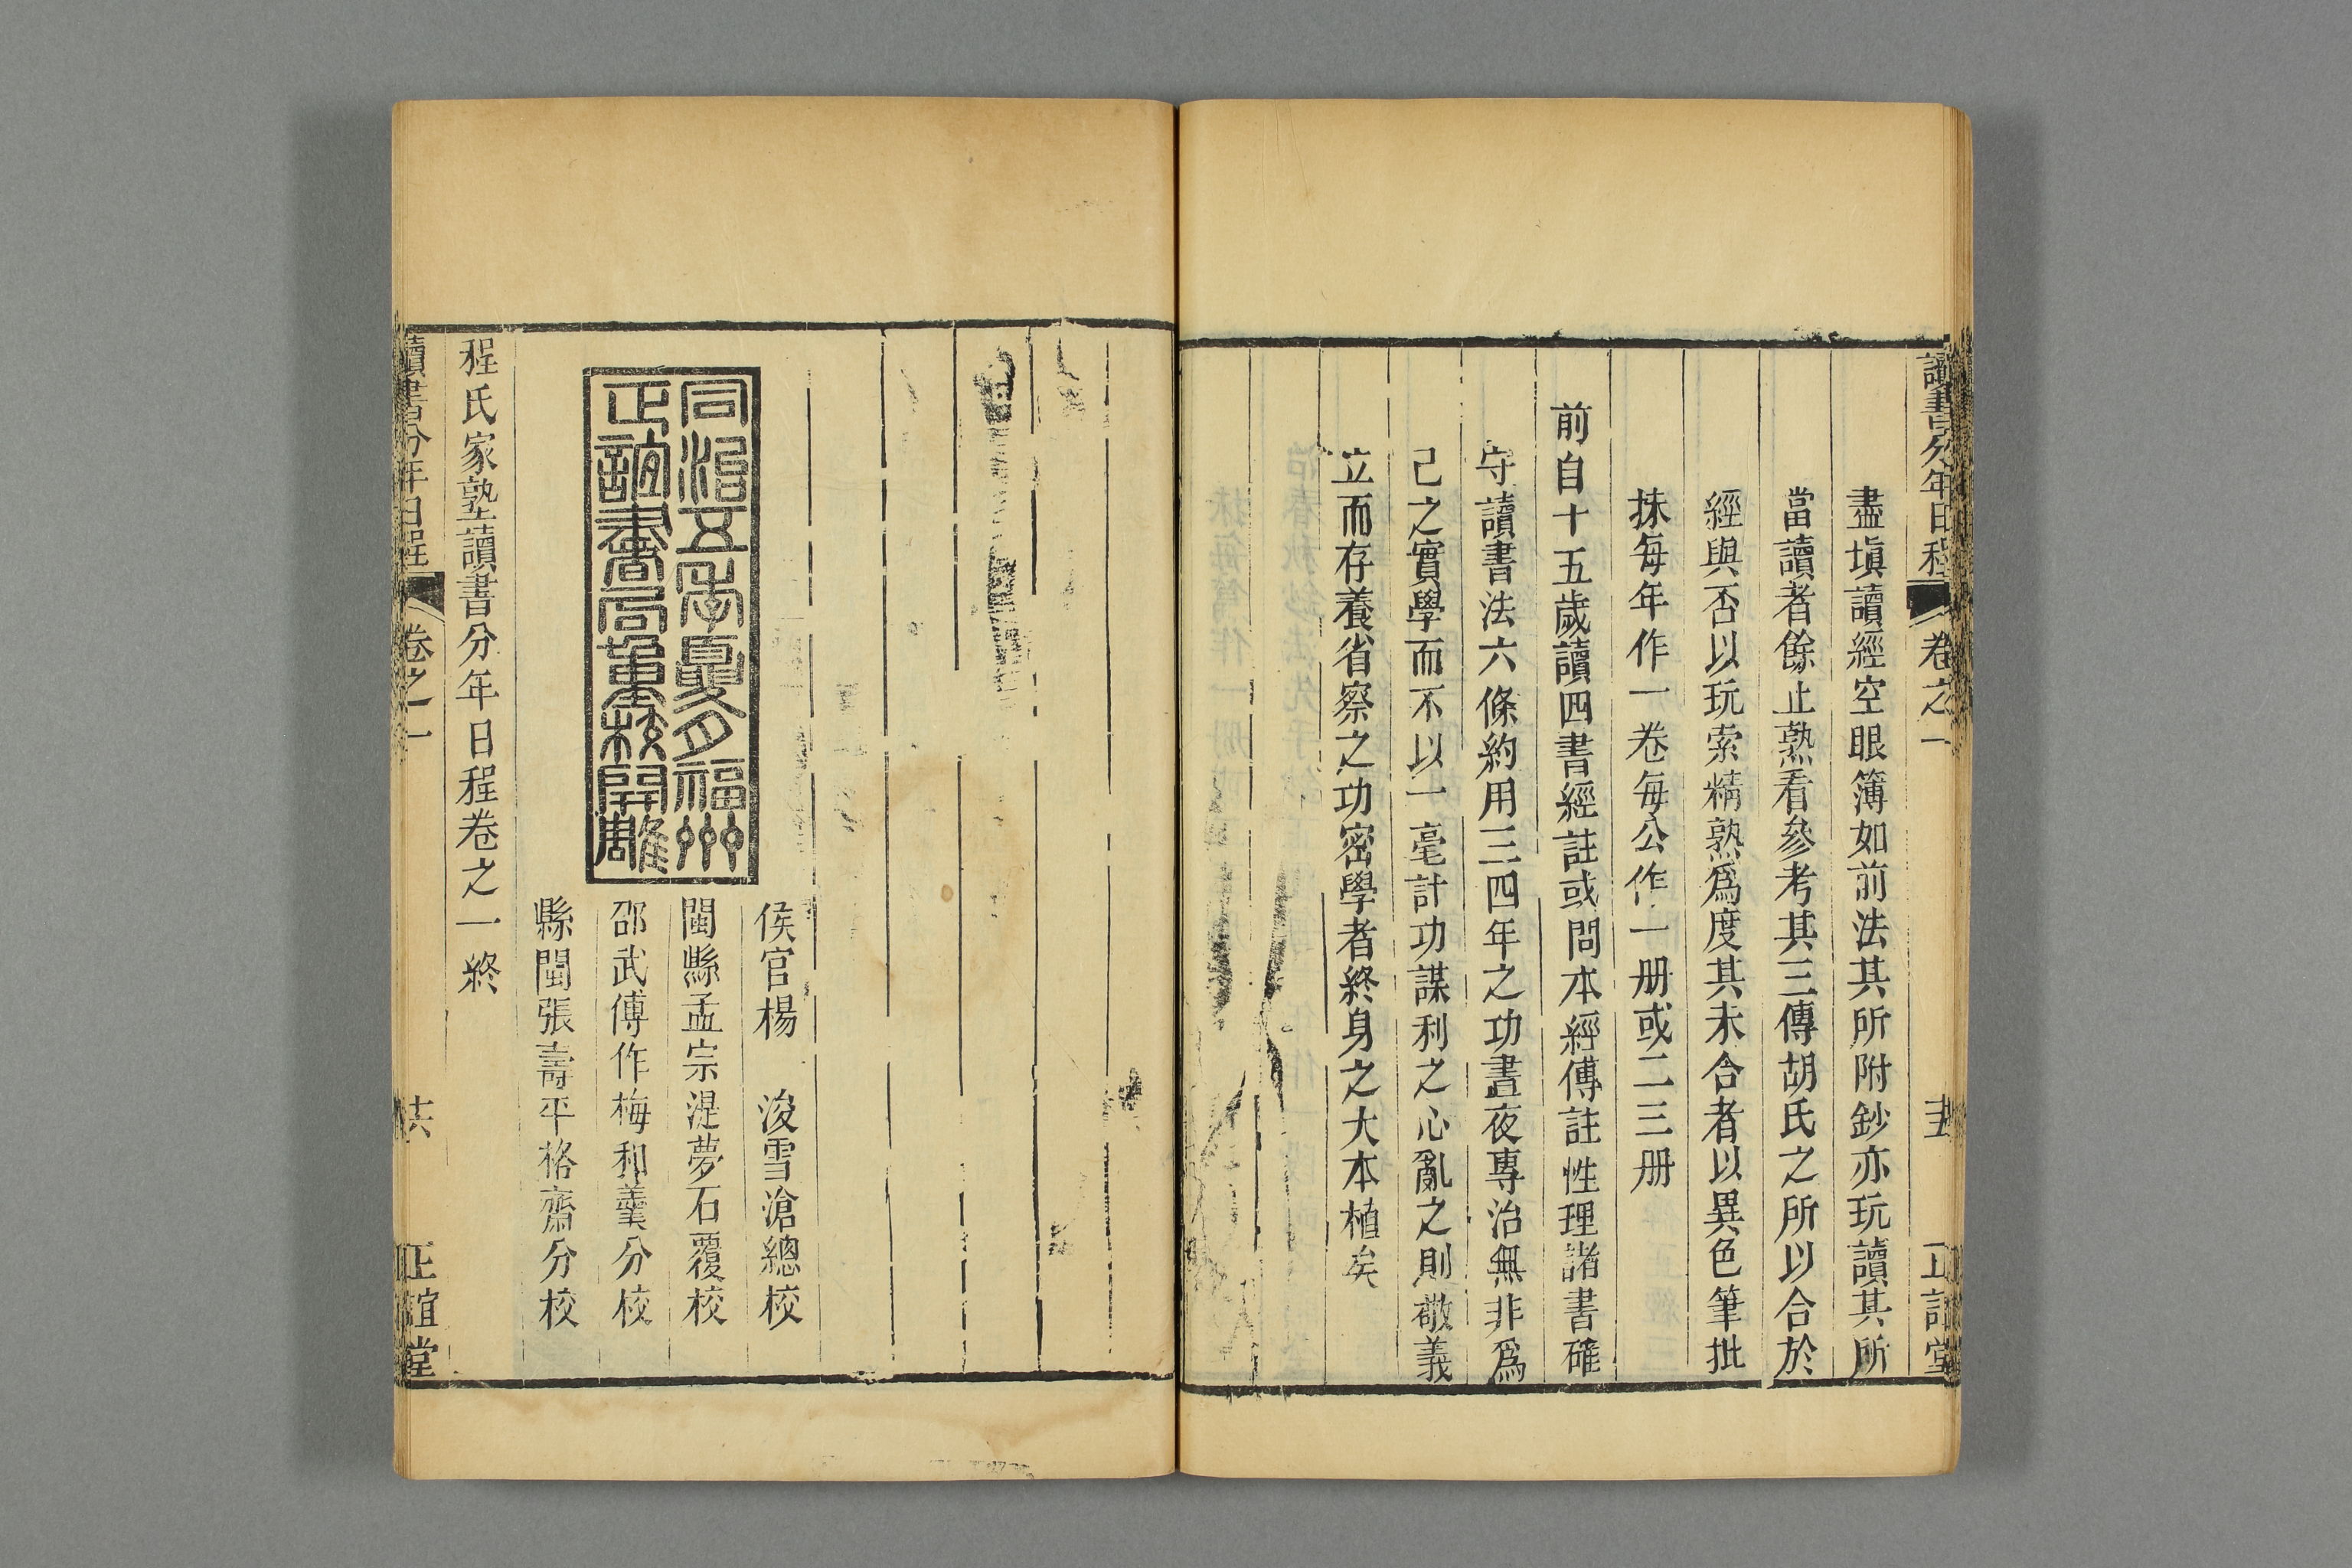 讀書分年日程 卷之一 十五 正誼堂
盡塡讀經空眼簿如前法其所附鈔亦玩讀其所
當讀者餘止熟看參考其三傳胡氏之所以合於
經與否以玩索精熟爲度其未合者以異色筆批
抹每年作一卷每公作一册或二三册
前自十五歲讀四書經註或問本經傳註性理諸書確
守讀書法六條約用三四年之功晝夜專治無非爲
己之實學而不以一毫計功謀利之心亂之則敬義
立而存養省察之功密學者終身之大本植矣
同治五年夏月福州
正誼書局重校開雕
侯官楊 浚雪滄總校
閩縣孟宗湜夢石覆校
邵武傅作梅和羹分校
縣閩張壽平格齋分校
程氏家塾讀書分年日程卷之一終
讀書分年日程 卷之一 十六 正誼堂